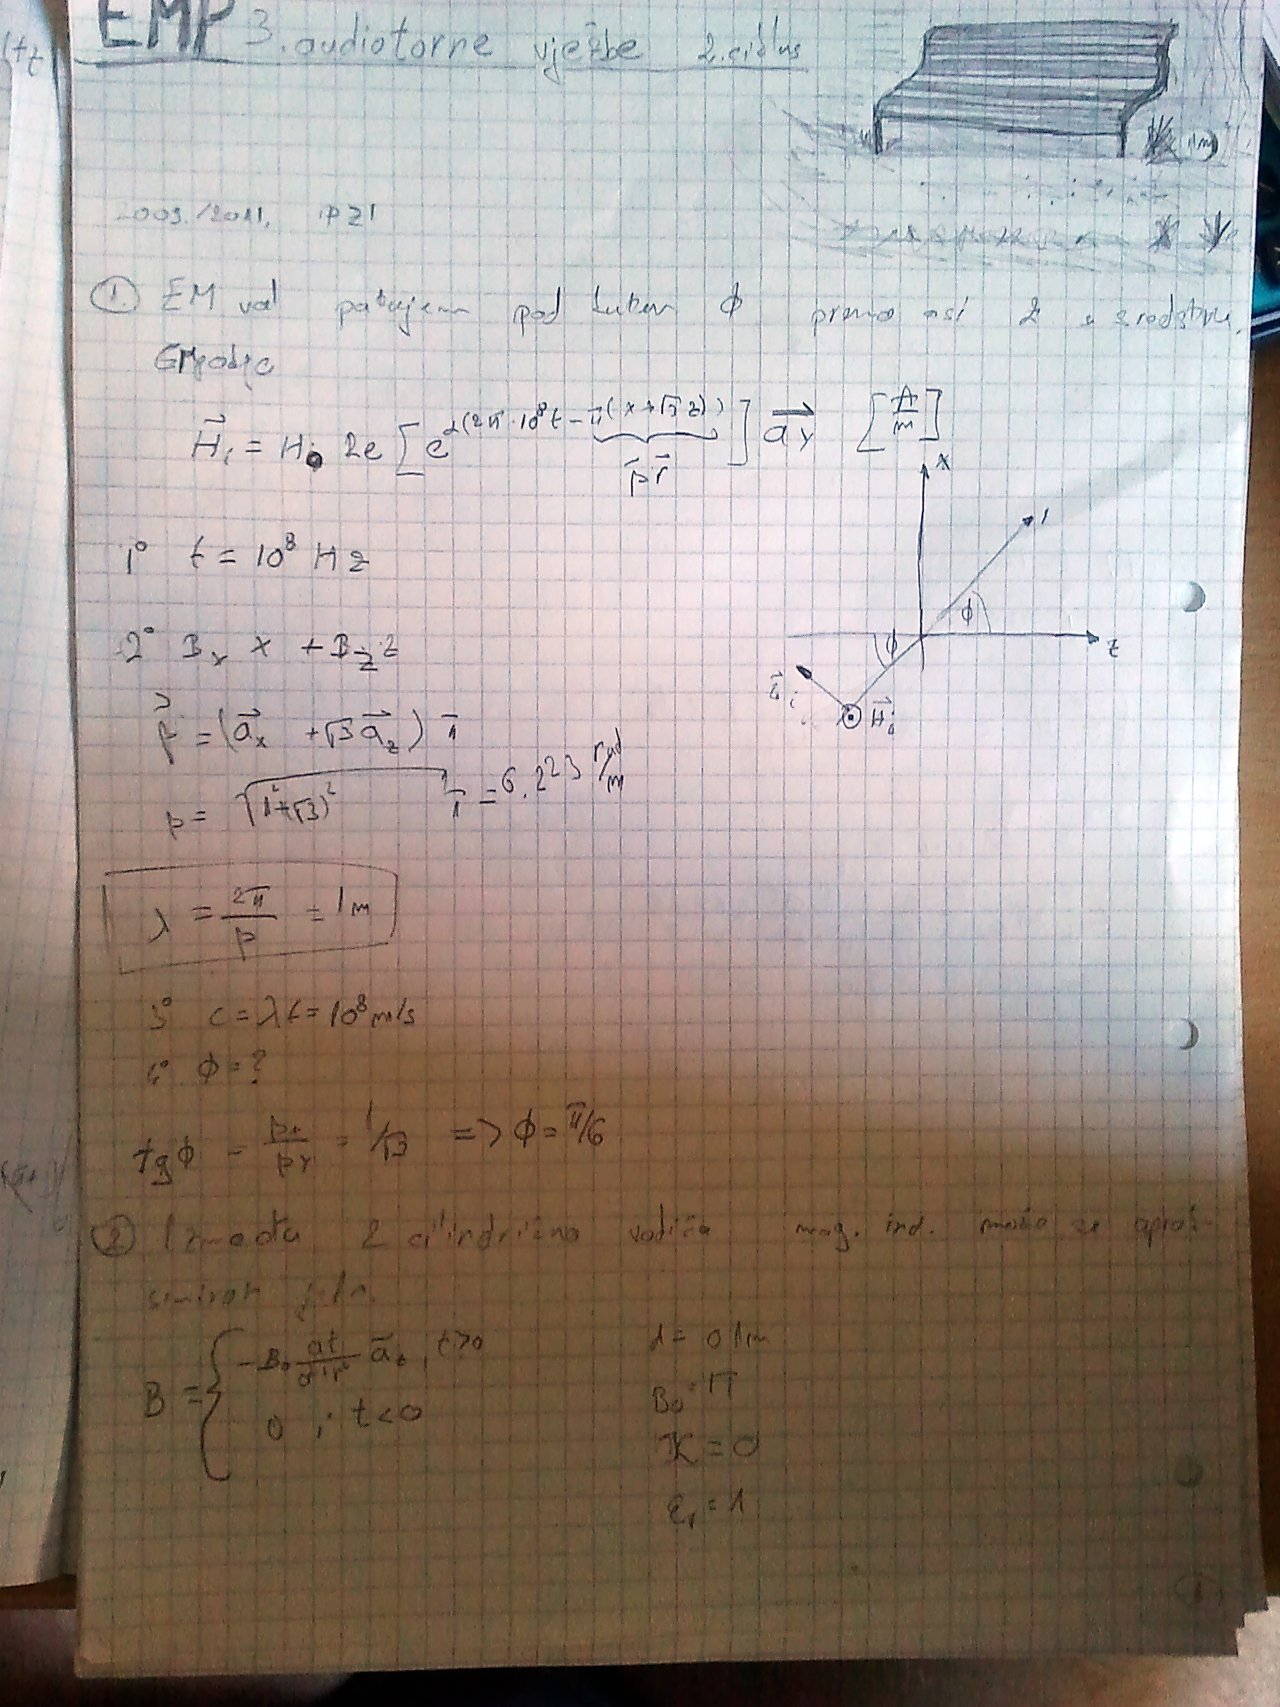 EMP 3. audiotorne vježbe 2. ciklus
2009./2011. PZI
1. EM val pod kutem ϕ prema osi z u sredstvu.
H⃗i = Hi0 Re [e^j(2π·10^8t − π(x+√3z))] a⃗y [A/m]
p⃗ r⃗
x
1° f = 10^8 Hz
ϕ
ϕ
z
2° Bx x + Bz z
H⃗i
p⃗ = (a⃗x + √3 a⃗z) π
p = √(1²+(√3)²) π = 6.223 rad/m
λ = 2π/p = 1m
3° c = λf = 10^8 m/s
4° ϕ = ?
tgϕ = = 1/√3 => ϕ = π/6
2. Između 2 cilindrična vodiča mag. ind. može se aproksimirat
B = { −B0 a⃗z, t>0
d = 0.1m
0 ; t<0
B0 = 1T
ϰ = 0
εr = 1
1